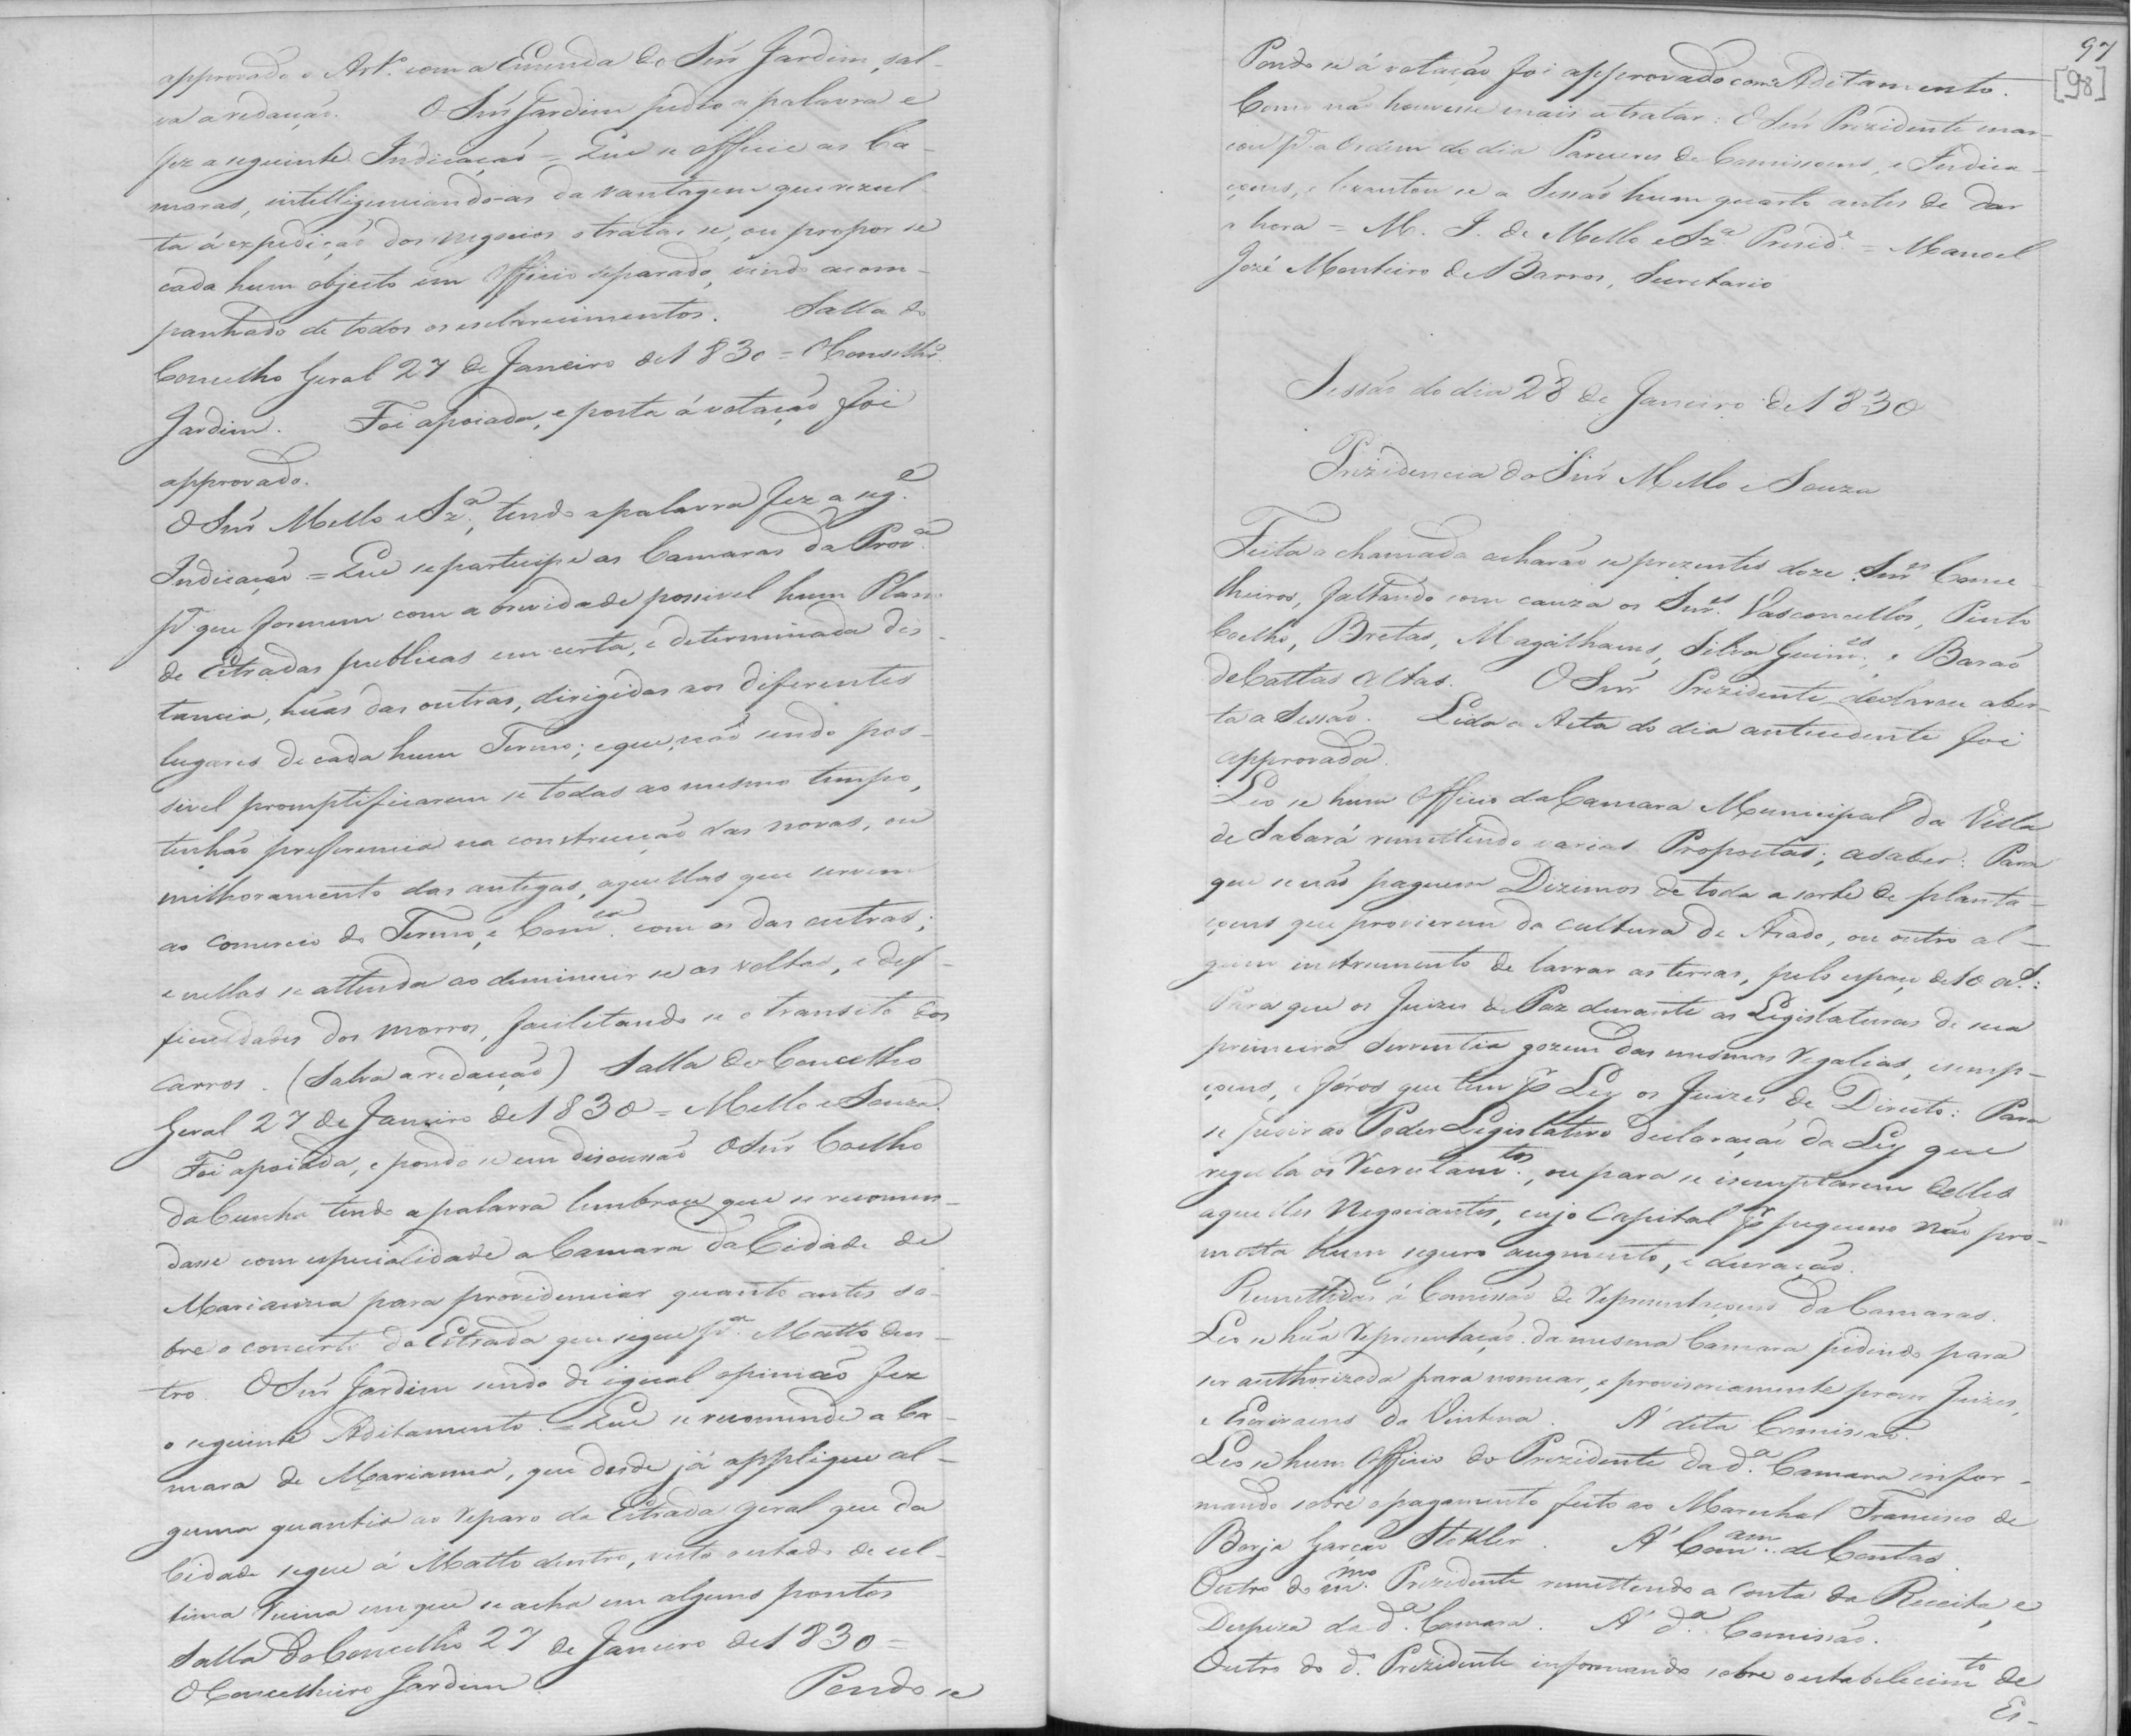 approvado o Art.º com a Emenda do Snr̃ Jardim, sal-
va a redacção. O Snr̃ Jardim pedio a palavra e
fez a seguinte Indicação = Que se officie as Ca-
maras, intelligenciando-as da vantagem que rezul-
ta á expedição dos negocios o tratar se, ou propor se
cada hum objecto em Officio separado, vindo acom-
panhado de todos os esclarecimentos. Salla do
Concelho Geral 27 de Janeiro de 1830 = O Conselhrº
Jardim. Foi apoiada, e posta á votação foi
approvado.
O Snr̃ Mello e Sz.ª, tendo a palavra fez a seg.e
Indicação = Que se participe as Camaras da Prov.ca
pª que formem com a brevidade possivel hum Plano
de Estradas publicas em certa, e determinada dis-
tancia, huãs das outras, dirigidas aos diferentes
lugares de cada hum Termo; e que, não sendo pos-
sivel promptificarem se todas ao mesmo tempo,
tenhão preferencia na construcção das novas, ou
milhoramento das antigas, aquellas que servem
ao comercio do Termo, e Com.ca com os das outras;
e nellas se attenda ao deminuir se as voltas, e def-
ficuldades dos morros, facilitando se o transito dos
carros. (Salva a redacção) Salla do Concelho
Geral 27 de Janeiro de 1830 = Mello e Souza.
Foi apoiada, e pondo se em discussão O Snr̃ Coelho
da Cunha tendo a palavra lembrou que se recomen-
dasse com especialidade a Camara da Cidade de
Marianna para providenciar quanto antes so-
bre o concerto da Estrada que segue p.ª Matto den-
tro. O Snr̃ Jardim sendo de igual opinião fez
o seguinte Aditamento. = Que se recomende a Ca-
mara de Marianna, que desde já applique al-
guma quantia ao reparo da Estrada geral que da
Cidade segue á Matto dentro, visto o estado de ul-
tima ruina em que se acha em alguns pontos
Salla do Concelho 27 de Janeiro de 1830 =
O Concelheiro Jardim. Pondo se
97
[98]
Pondo se á votação foi approvado com o Aditamento.
Como não houvesse mais a tratar: O Snr̃ Prezidente mar-
cou pª a Ordem do dia Pareceres de Comissoens, e Indica-
çoens, e levantou se a Sessão hum quarto antes de dar
a hora = M. I. de Mello e Sz.ª Presid.e = Manoel
Jozé Monteiro de Barros, Secretario
Sessão do dia 28 de Janeiro de 1830
Prezidencia do Snr̃ Mello e Souza
Feita a chamada acharão se prezentes doze Snr.es Conce-
lheiros, faltando com cauza os Snr.es Vasconcellos, Pinto
Coelho, Bretas, Magalhaens, Silva Guim.es, e Barão
de Cattas Altas. O Snr̃ Prezidente declarou aber-
ta a Sessão. Lida a Acta do dia antecedente foi
approvada.
Leo se hum Officio da Camara Municipal da Villa
de Sabará remettendo varias Propostas; a saber: Para
que se não paguem Dizimos de toda a sorte de planta-
çoens que provierem da cultura de Arado, ou outro al-
gum instrumento de lavrar as terras, pelo espaço de 10 a.s:
Para que os Juizes de Paz durante as Legislaturas de sua
primeira serventia gozem das mesmas regalias, isemp-
çoens, e fóros que tem pr Ley os Juizes de Direito: Para
se pedir ao Poder Legislativo declaração da Ley que
regula os Recrutam.tos, ou para se isemptarem delles
aquelles Negociantes, cujo Capital pr pequeno não pro-
metta hum seguro augmento, e duração.
Remettidas á Comissão de Representaçoens da Camaras.
Leo se huã Representação da mesma Camara pedindo para
ser authorizada para nomear, e provisoriamente prover Juizes,
e Escrivaens da Vintena. Á dita Comissão.
Leo se hum Officio do Prezidente da d.ª Camara infor-
mando sobre o pagamento feito ao Marechal Francisco de
Borja Garção Stokler. Á Com.am de Contas.
Outro do m.mo Prezidente remettendo a conta da Receita, e
Despeza da d.ª Camara. Á d.ª Comissão.
Outro do d.º Prezidente informando sobre o estabelecim.to de
Es-